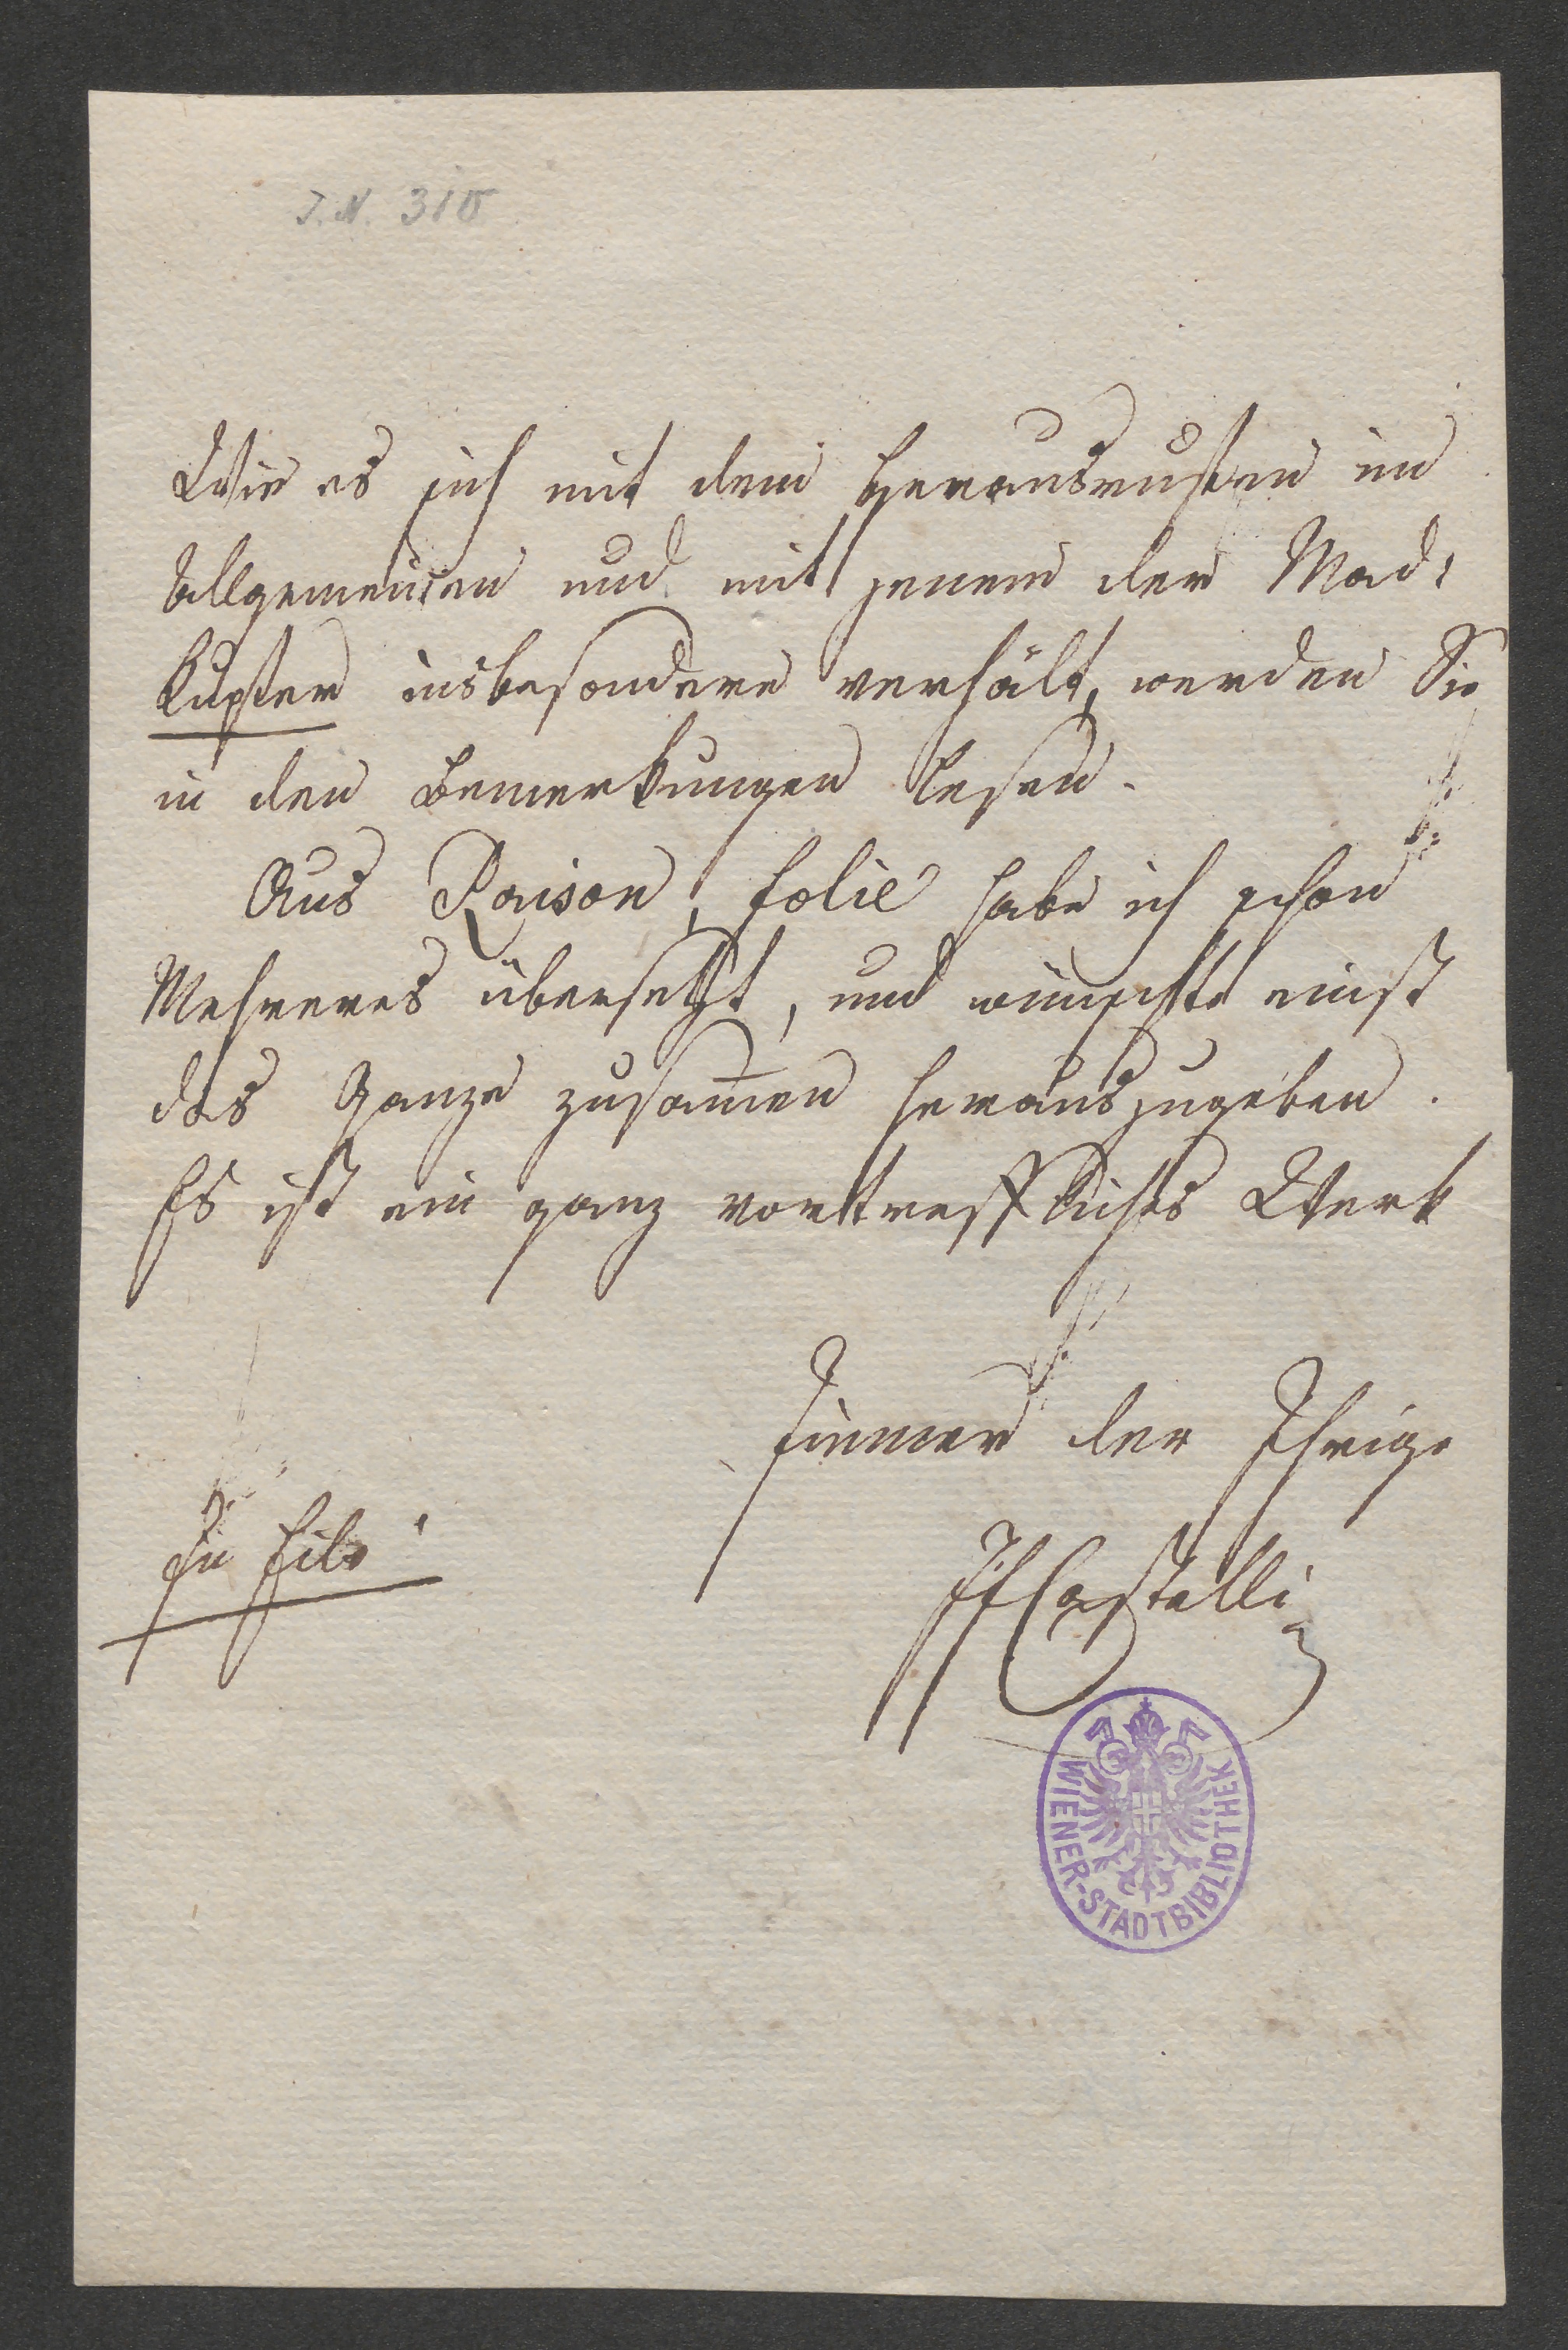 I.N. 310
Wie es sich mit dem Herausrufen im
Allgemeinen und mit jenem der Mad:
Kupfer insbesondere verhält, werden Sie
in den Bemerkungen lesen.
Aus Raison, folie habe ich schon
Mehreres übersetzt, und wünschte einst
das Ganze zusam̅en herauszugeben.
Es ist ein ganz vortreffliches Werk
Immer der Ihrige
In Eile
IFCastelli
WIENER-STADTBIBLIOTHEK